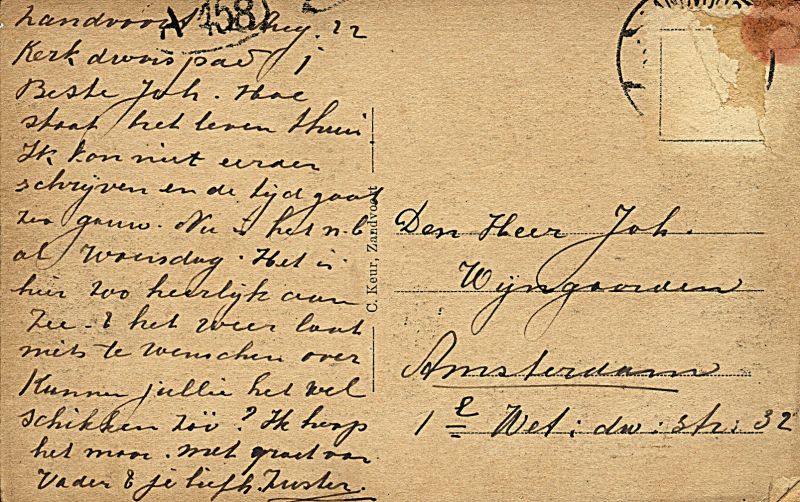 Zandvoort Aug. 22
Kerkdwarspad 1
Beste Joh. Hoe
staat het leven thuis
Ik kon niet eerder
schrijven en de tijd gaat
zoo gauw. Nu is het n.b.
al Woensdag. Het is
hier zoo heerlijk aan
Zee. & het weer laat
niets te wenschen over
Kunnen jullie het wel
schikken zóó? Ik hoop
het maar. Met groet van
Vader & je liefh. Zuster.
A 158
C. Keur, Zandvoort
Den Heer Joh.
Wijngaarden
Amsterdam
1e Wet: dw: str: 32